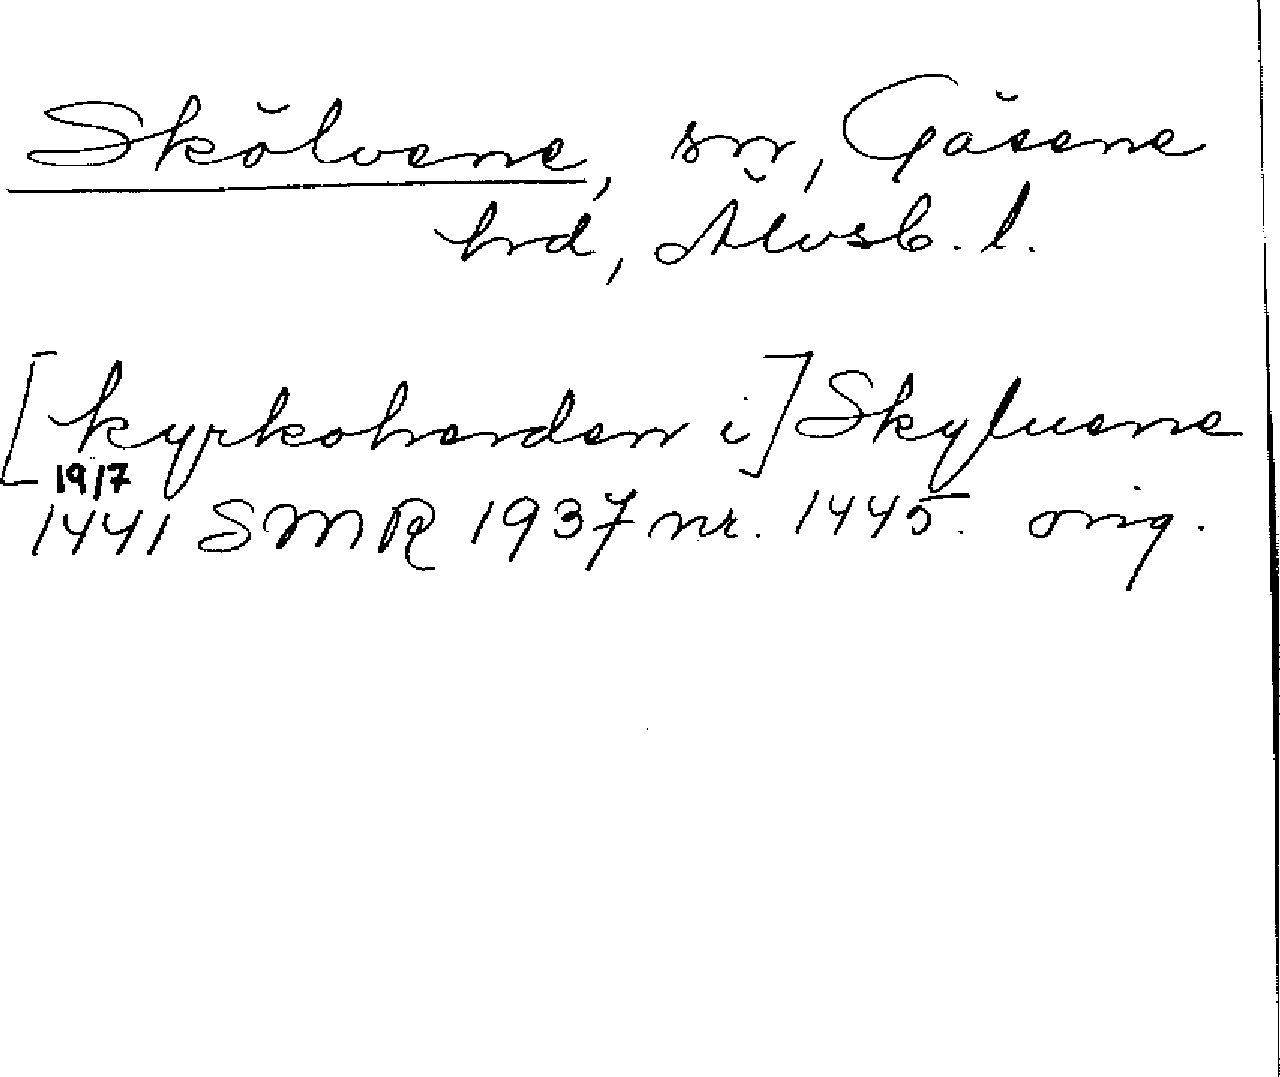 Skölvene, sn, Gäsene
hd, Älvsb. l.
[kyrkoherden i] Skyluene
19/7
1441 SMR 1937 nr. 1445. orig.